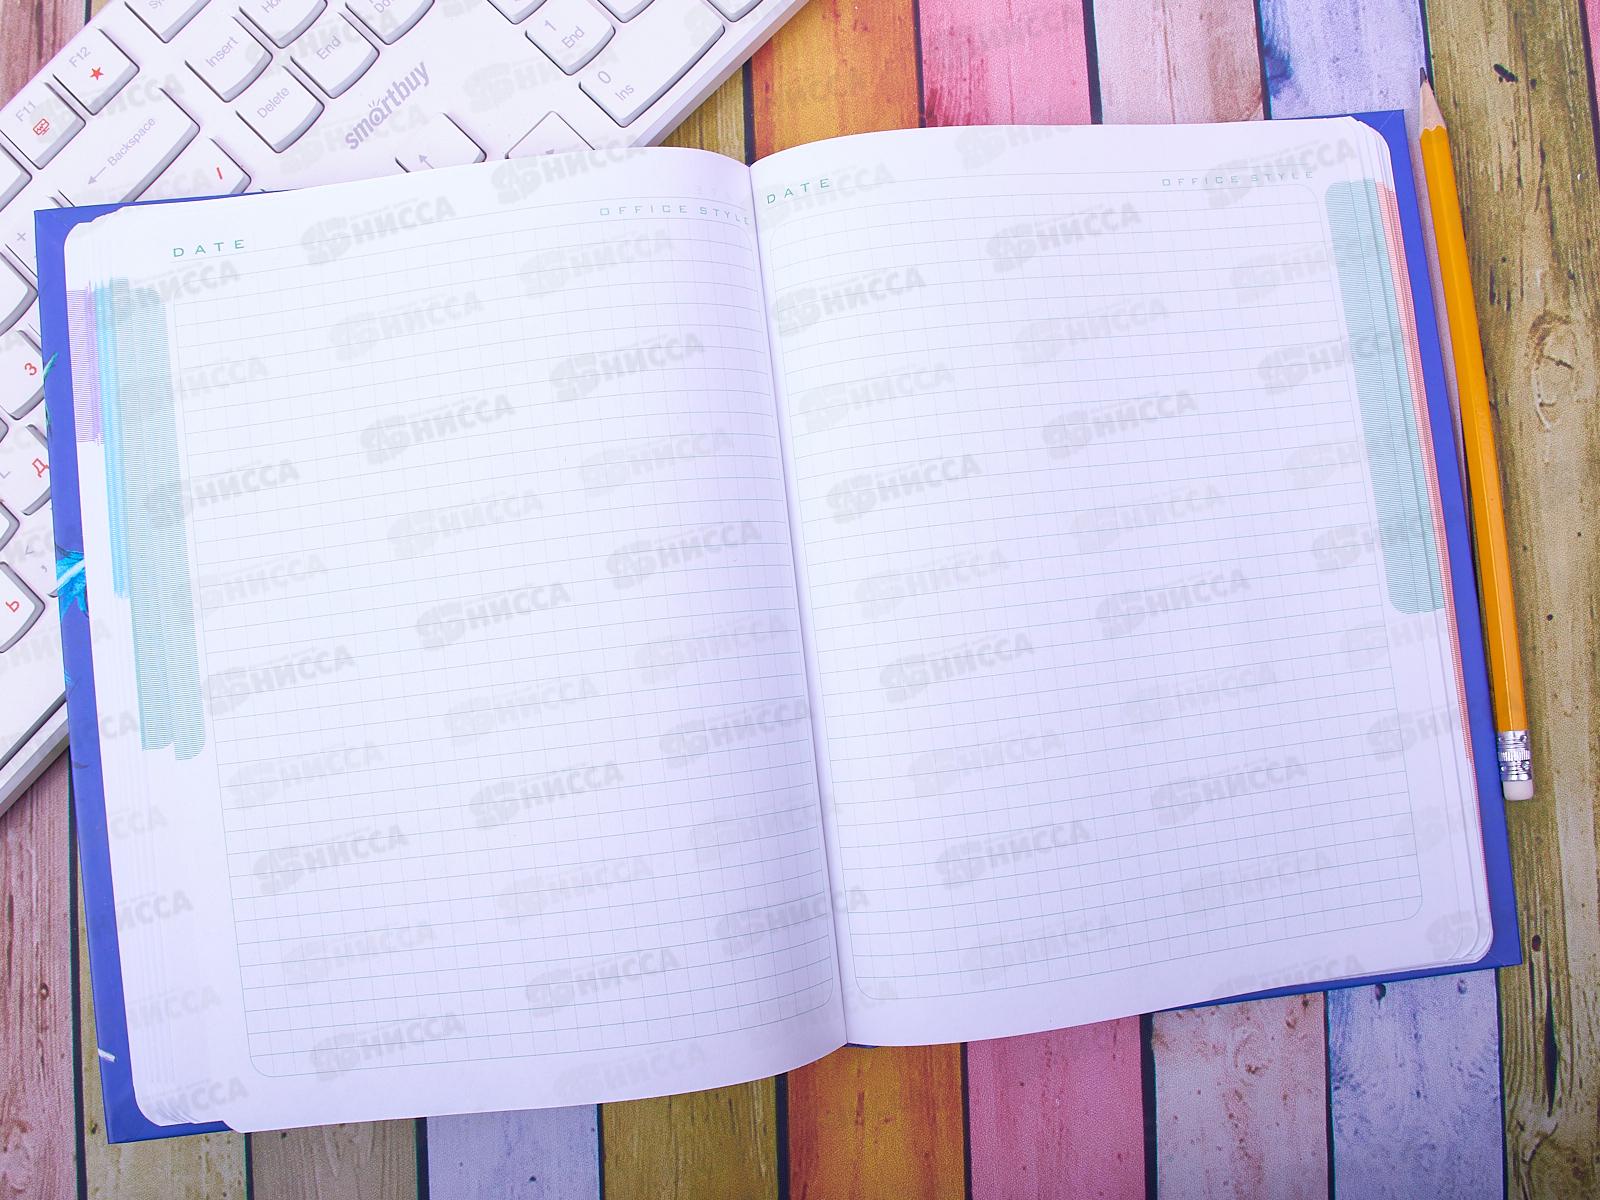 F12
F11
Insert
End
Delete
Backspace
smartbuy
1
End
0
Ins
3
Д
Ь
DATE
OFFICE STYLE
DATE
OFFICE STYLE
НИССА